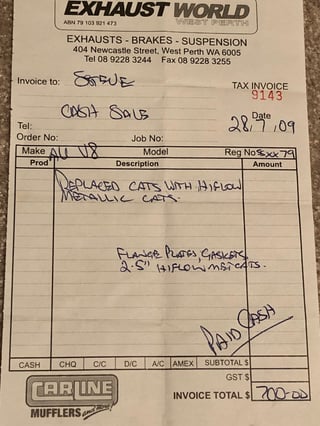 EXHAUST WORLD
WEST PERTH
ABN 79 103 921 473
EXHAUSTS - BRAKES - SUSPENSION
404 Newcastle Street, West Perth WA 6005
Tel 08 9228 3244 Fax 08 9228 3255
Invoice to: STEVE
TAX INVOICE
9143
CASH SALE
Date
28,7,09
Tel:
Order No: Job No:
Make AU V8 Model Reg No
Prod Description Amount
REPLACED CATS WITH HIFLOW
METALLIC CATS.
FLANGE PLATES, GASKETS
2.5" HIFLOW MET CATS.
PAID CASH
CASH CHQ C/C D/C A/C AMEX SUBTOTAL $
GST $
INVOICE TOTAL $ 700-00
CARLINE
MUFFLERS and more!